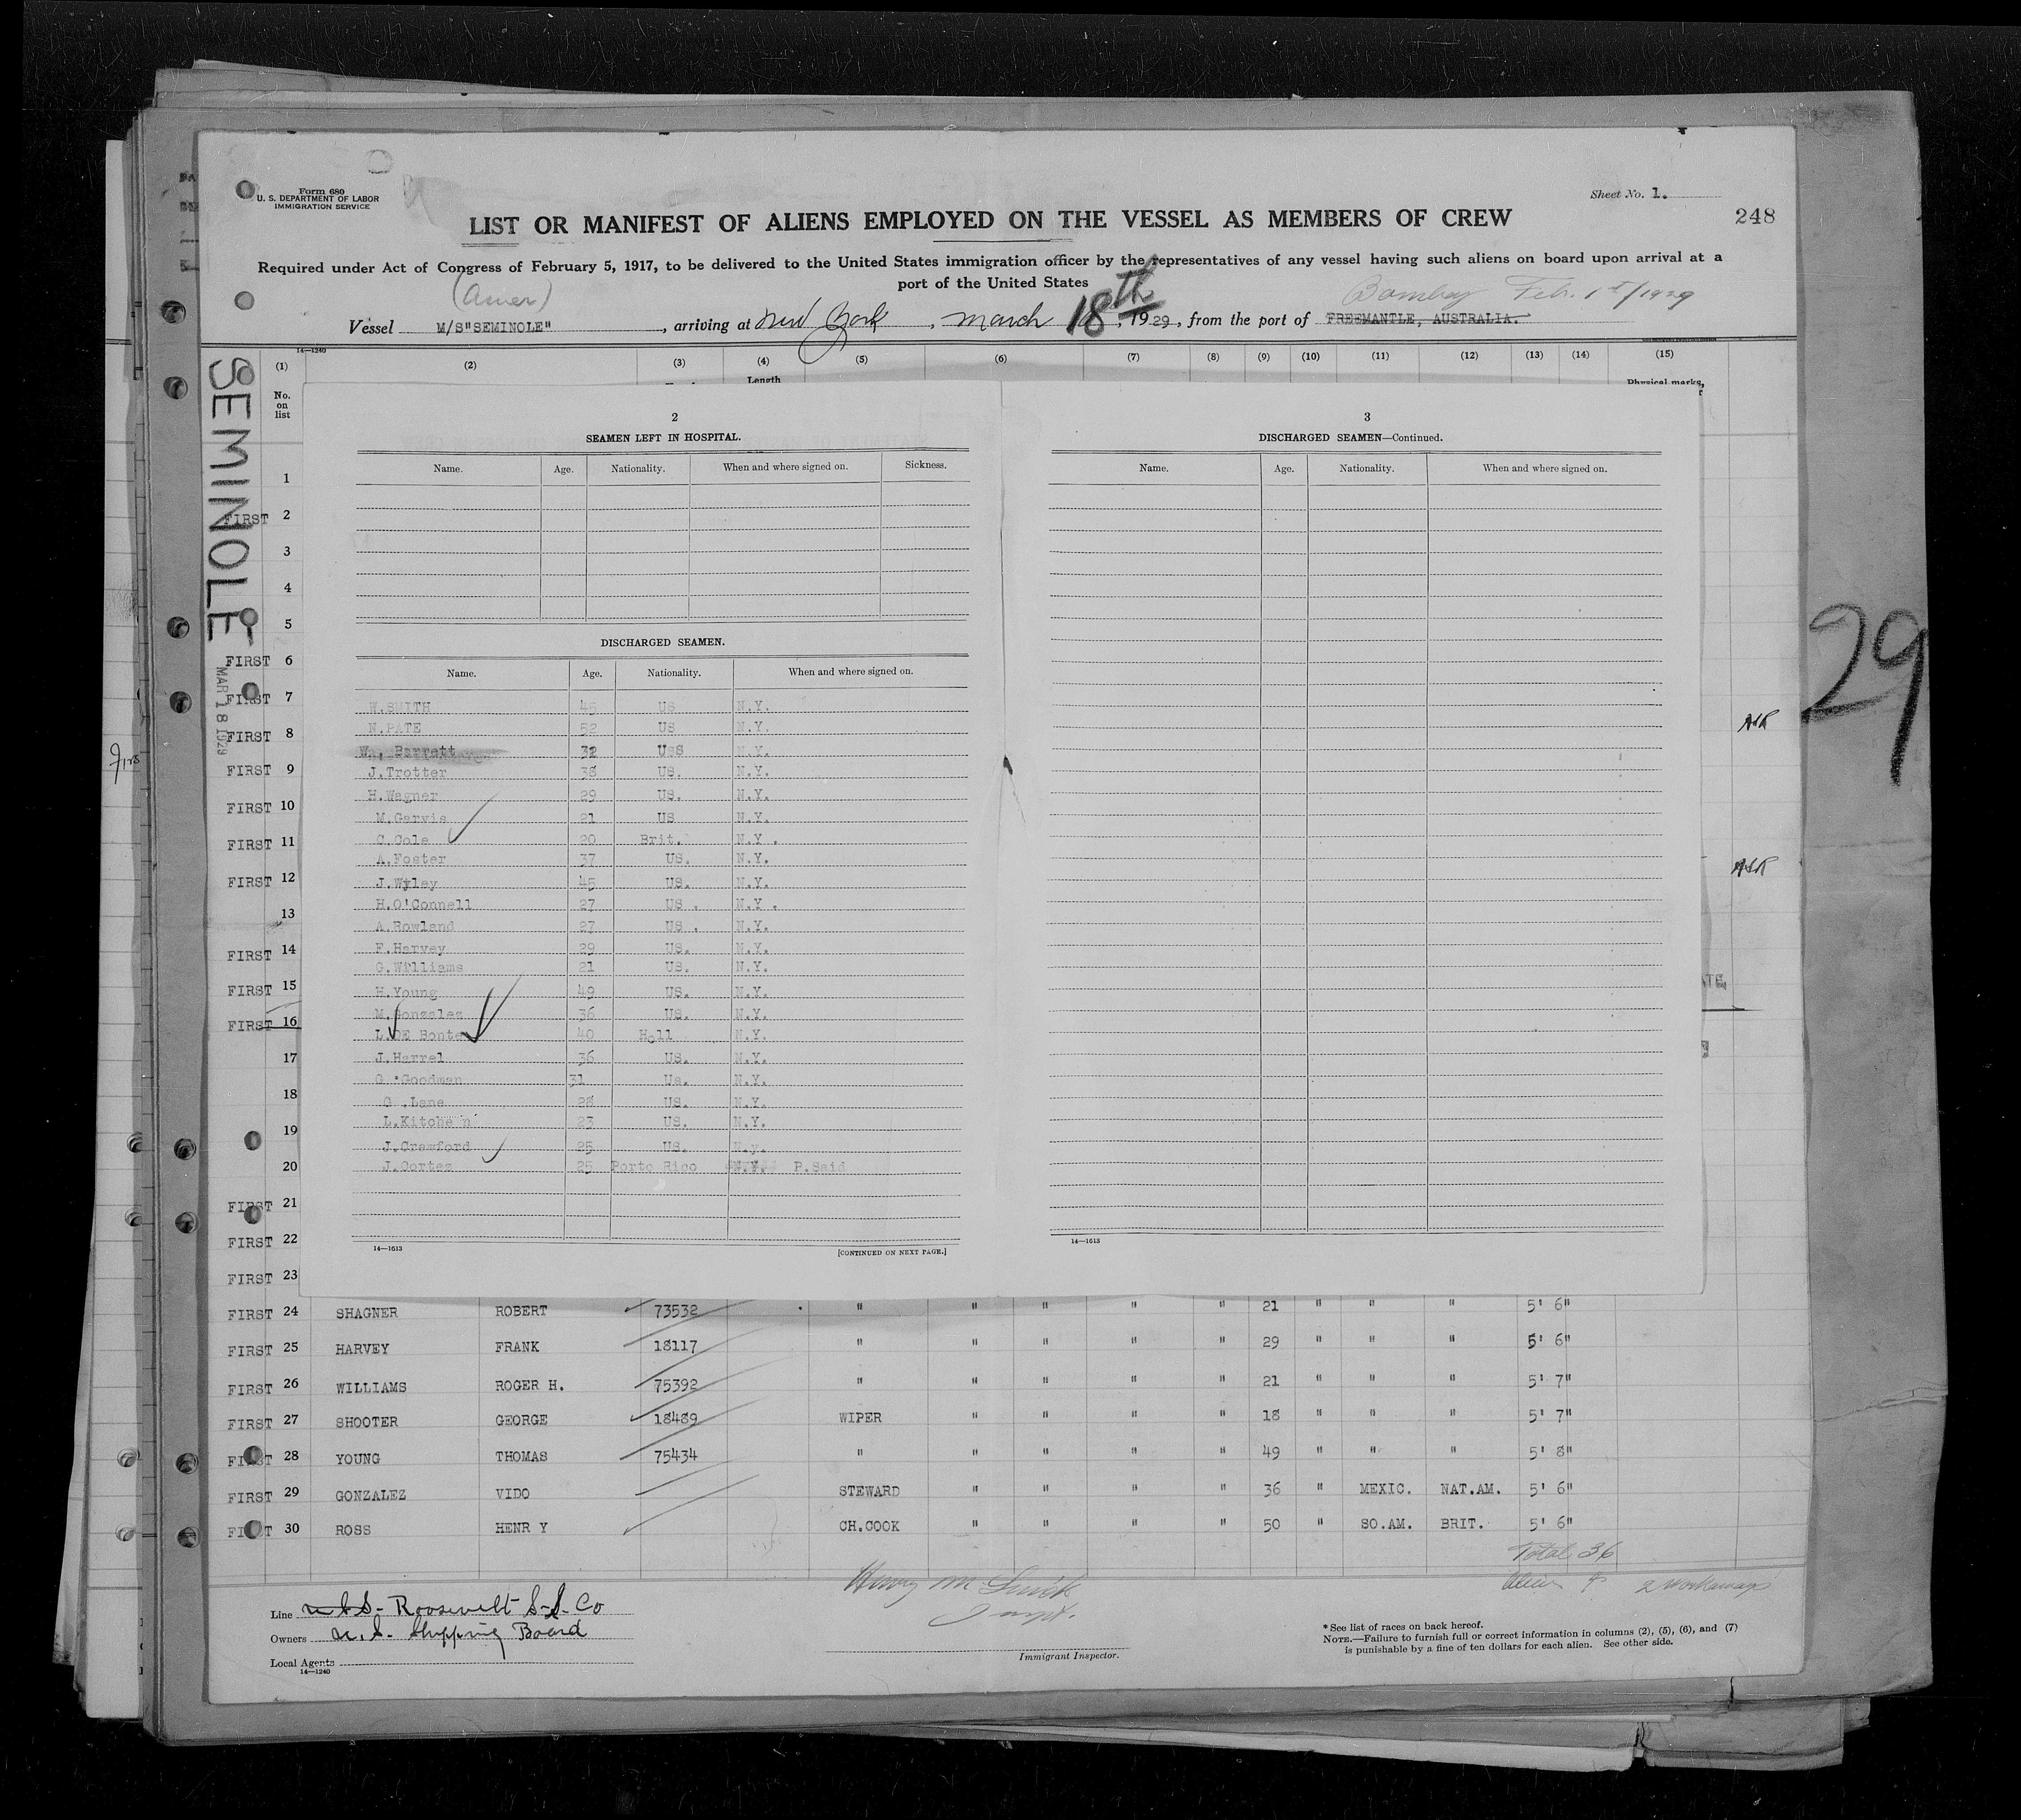 Form 680
U. S. DEPARTMENT OF LABOR
IMMIGRATION SERVICE
Sheet No. 1.
248
LIST OR MANIFEST OF ALIENS EMPLOYED ON THE VESSEL AS MEMBERS OF CREW
Required under Act of Congress of February 5, 1917, to be delivered to the United States immigration officer by the representatives of any vessel having such aliens on board upon arrival at a
port of the United States
(Amer)
Bombay Feb. 1st/1929
Vessel M/S"SEMINOLE", arriving at New York, March 18th, 1929, from the port of FREEMANTLE, AUSTRALIA.
14—1240
(1) (2) (3) (4) (5) (6) (7) (8) (9) (10) (11) (12) (13) (14) (15)
Length
Physical marks,
No.
on
list
SEMINOLE
MAR 18 1929
29
2
SEAMEN LEFT IN HOSPITAL.
Name. Age. Nationality. When and where signed on. Sickness.
DISCHARGED SEAMEN.
Name. Age. Nationality. When and where signed on.
W.SMITH 45 US N.Y.
N.PATE 52 US N.Y.
W. Barratt 32 US N.Y.
J.Trotter 38 US. N.Y.
H.Wagner 29 US. N.Y.
M.Garvis 21 US N.Y.
C.Cole 20 Brit. N.Y.
A.Foster 37 US. N.Y.
J.Wyley 45 US. N.Y.
H.O'Connell 27 US. N.Y.
A.Rowland 27 US. N.Y.
F.Harvey 29 US. N.Y.
G.Williams 21 US. N.Y.
H.Young 49 US. N.Y.
M.Gonzalez 36 US. N.Y.
L.DE Bonte 40 Holl N.Y.
J.Harrel 36 US. N.Y.
G.Goodman 31 Us. N.Y.
G.Lane 28 US. N.Y.
L.Kitchen 23 US. N.Y.
J.Crawford 25 US. N.y.
J.Cortez 25 Porto Rico N.Y. P.Said
14—1613
[CONTINUED ON NEXT PAGE.]
3
DISCHARGED SEAMEN—Continued.
Name. Age. Nationality. When and where signed on.
14—1613
1
FIRST 2
3
4
5
FIRST 6
FIRST 7
FIRST 8
FIRST 9
FIRST 10
FIRST 11
FIRST 12
13
FIRST 14
FIRST 15
FIRST 16
17
18
19
20
FIRST 21
FIRST 22
FIRST 23
FIRST 24 SHAGNER ROBERT 73532 " " " " " 21 " " " 5' 6"
FIRST 25 HARVEY FRANK 18117 " " " " " 29 " " " 5' 6"
FIRST 26 WILLIAMS ROGER H. 75392 " " " " " 21 " " " 5' 7"
FIRST 27 SHOOTER GEORGE 18489 WIPER " " " " 18 " " " 5' 7"
FIRST 28 YOUNG THOMAS 75434 " " " " " 49 " " " 5' 8"
FIRST 29 GONZALEZ VIDO STEWARD " " " " 36 " MEXIC. NAT.AM. 5' 6"
FIRST 30 ROSS HENRY CH.COOK " " " " 50 " SO.AM. BRIT. 5' 6"
Total 36
2 workaways
Line U.S.S- Roosevelt S.S. Co
Owners U.S. Shipping Board
Local Agents
14—1240
Immigrant Inspector.
* See list of races on back hereof.
NOTE.—Failure to furnish full or correct information in columns (2), (5), (6), and (7)
is punishable by a fine of ten dollars for each alien. See other side.